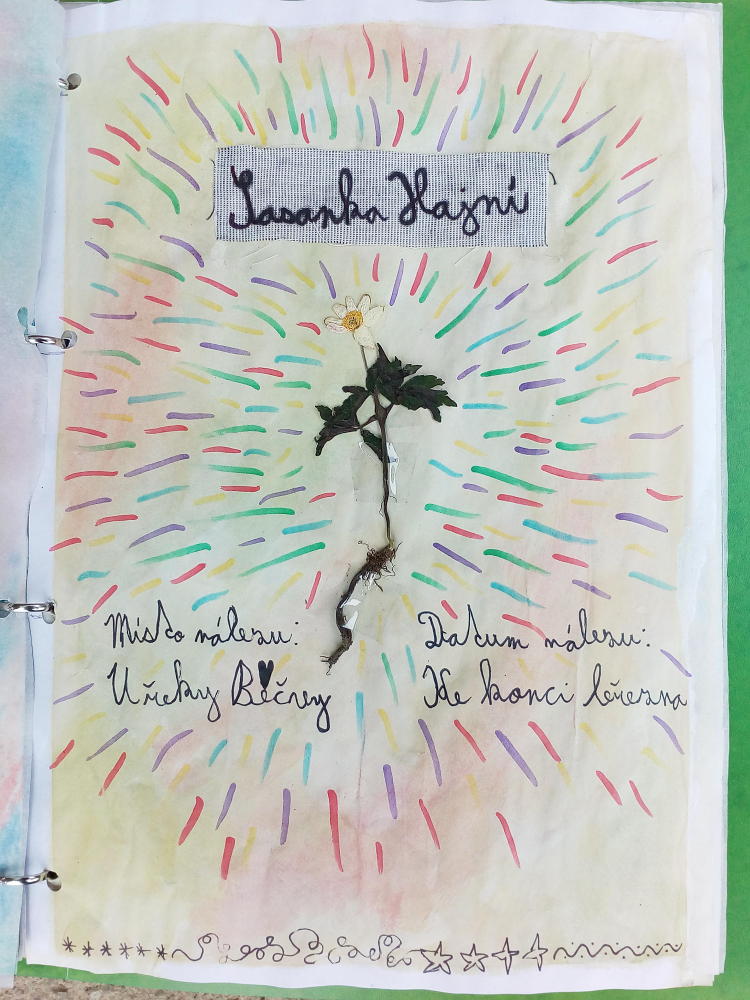 Sasanka Hajní
Místo nálezu:
U řeky Bečvy
Datum nálezu:
Ke konci března